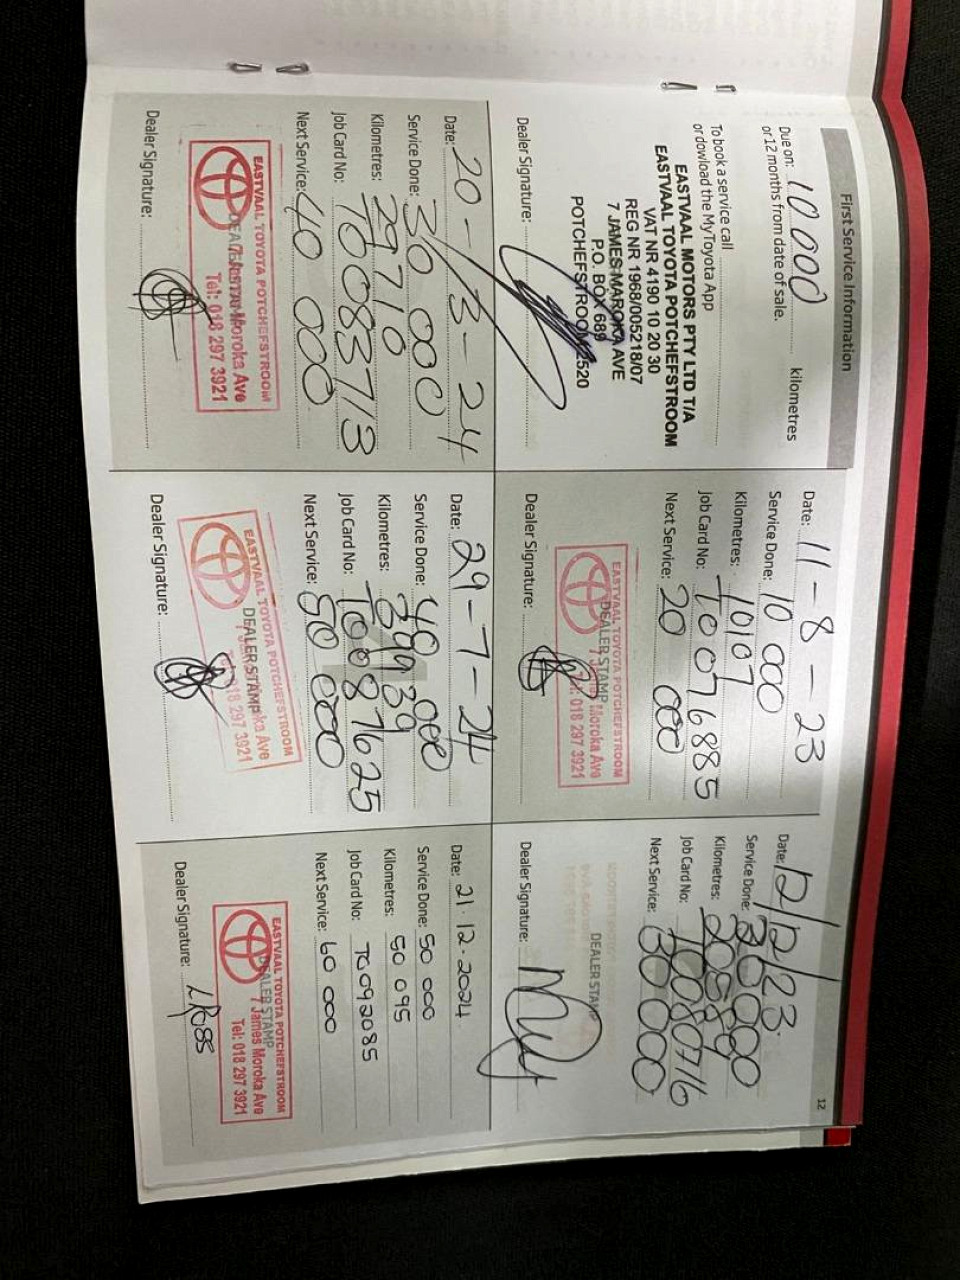 First Service Information
12
Due on: 10 000 kilometres
or 12 months from date of sale.
To book a service call
or dowload the MyToyota App
EASTVAAL MOTORS PTY LTD T/A
EASTVAAL TOYOTA POTCHEFSTROOM
VAT NR 4190 10 20 30
REG NR 1968/005218/07
7 JAMES MAROKA AVE
P.O. BOX 689
POTCHEFSTROOM 2520
Dealer Signature:
Date: 11-8-23
Service Done: 10 000
Kilometres: 10107
Job Card No: T0076885
Next Service: 20 000
EASTVAAL TOYOTA POTCHEFSTROOM
DEALER STAMP
Moroka Ave
Tel: 018 297 3921
Dealer Signature:
Date: 12/12/23
Service Done:
Kilometres:
Job Card No: T0080716
Next Service: 30 000
DEALER STAMP
Dealer Signature:
Date: 20-/3-24
Service Done: 30 000
Kilometres: 29710
Job Card No: T0083713
Next Service: 40 000
EASTVAAL TOYOTA POTCHEFSTROOM
7 James Moroka Ave
Tel: 018 297 3921
Dealer Signature:
Date: 29-7-24
Service Done: 40 000
Kilometres: 39939
Job Card No: T0087625
Next Service: 50 000
EASTVAAL TOYOTA POTCHEFSTROOM
DEALER STAMP
018 297 3921
Dealer Signature:
Date: 21.12.2024
Service Done: 50 000
Kilometres: 50 095
Job Card No: T0092085
Next Service: 60 000
EASTVAAL TOYOTA POTCHEFSTROOM
DEALER STAMP
7 James Moroka Ave
Tel: 018 297 3921
Dealer Signature: